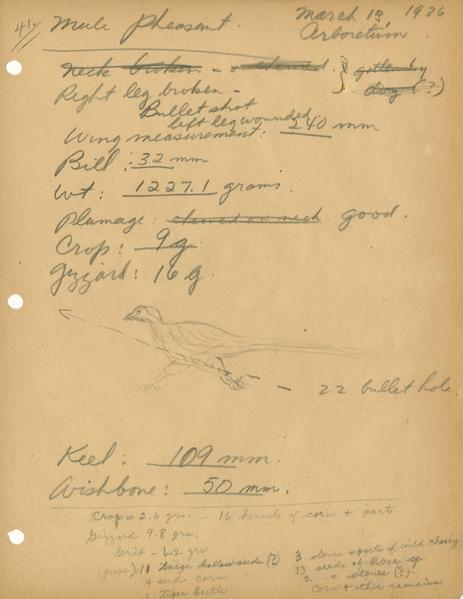 Male Pheasant.
March 18, 1936
Arboretum
neck broken
gotten by
dog (?)
Right leg broken -
Bullet shot
left leg wounded
Wing measurement: 240 mm
Bill: 32 mm
Wt: 1227.1 grams.
Plumage: chewed on neck good.
Crop: 9g
Gizzard: 16 g.
22 bullet hole.
Keel: 109 mm.
Wishbone: 50 mm.
Crop = 2.6 grs. - 16 kernels of corn + part
Gizzard 9.8 grs.
Grit - 6.2 grs
(grape) - 11 large hollow seeds (?)
4 seeds corn
1 tiger beetle
3 stones + parts of wild cherry
13 seeds of Rosa sp
2 stones (?)
Corn + other remains